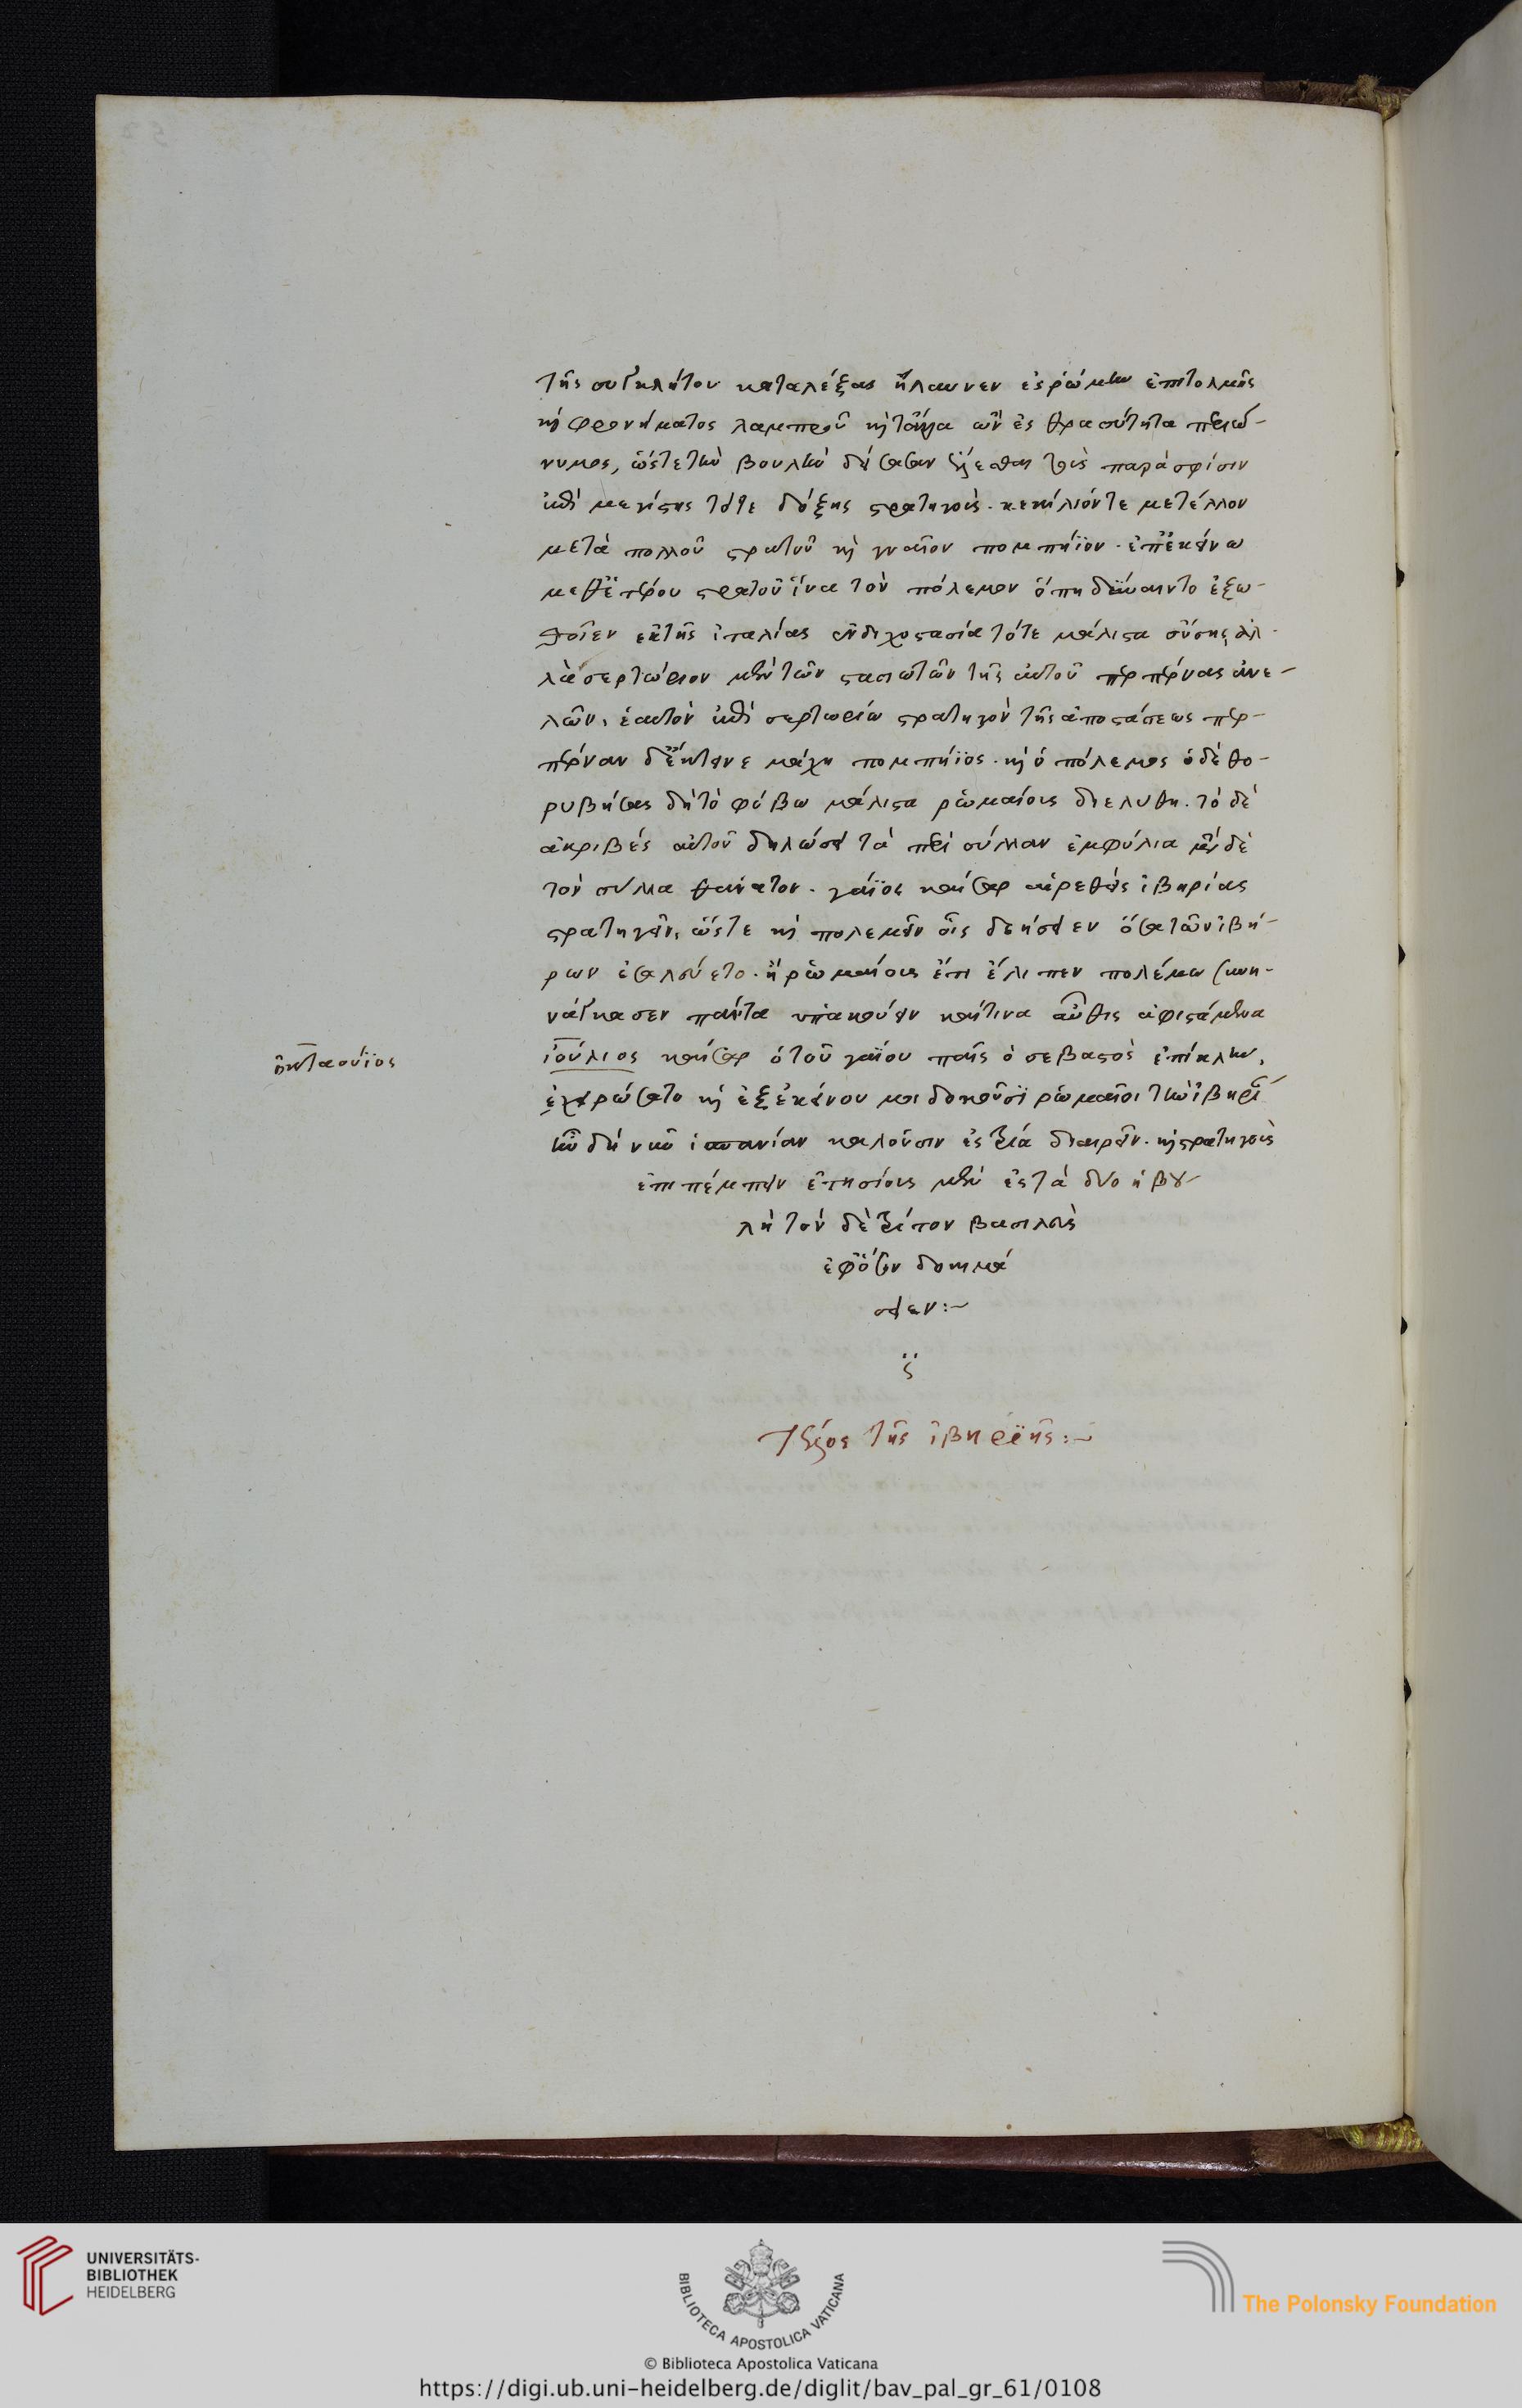 τῆς συγκλήτου καταλέξας ἤλαυνεν ἐς ῥώμην ἐπὶ τολμῆς
καὶ φρονήματος λαμπροῦ καὶ τἆλλα ὢν ἐς θρασύτητα περιώ-
νυμος, ὥστε τὴν βουλὴν δείσασαν ἑλέσθαι τοὺς παρὰ σφίσιν
ἐπὶ μεγίστης τότε δόξης στρατηγούς. κεκίλιόν τε μετέλλον
μετὰ πολλοῦ στρατοῦ καὶ γναῖον πομπήϊον. ἐπ' ἐκείνω
μεθ' ἑτέρου στρατοῦ ἵνα τὸν πόλεμον ὅπη δύναιντο ἐξω-
θοῖεν ἐκ τῆς ἰταλίας ἐν διχοστασία τότε μάλιστα οὔσης, ἀλ-
λὰ σερτώριον μὲν τῶν στασιωτῶν τῆς αὐτοῦ περπέρνας ἀνε-
λὼν, ἑαυτὸν ἐπὶ σερτωρίω στρατηγὸν τῆς ἀποστάσεως περ-
πέρναν δ' ἔκτεινε μάχη πομπήϊος. καὶ ὁ πόλεμος ὁδὲ θο-
ρυβήσας δὴ τὸ φόβω μάλιστα ῥωμαίους διελύθη. τὸ δὲ
ἀκριβὲς αὐτοῦ δηλώσει τὰ περὶ σύλλαν ἐμφύλια μετὰ δὲ
τὸν σύλλα θάνατον. γάϊος καίσαρ αἱρεθεὶς ἰβηρίας
στρατηγεῖν, ὥστε καὶ πολεμεῖν οἷς δεήσειεν ὅσα τῶν ἰβή-
ρων ἐσαλεύετο. ἢ ῥωμαίοις ἔτι ἔλιπεν πολέμω συνη-
νάγκασεν πάντα ὑπακούειν καίτινα αὖθις ἀφιστάμενα
ἰούλιος καίσαρ ὁ τοῦ γαΐου παῖς ὁ σεβαστὸς ἐπίκλην,
ὀκταούϊος
ἐχειρώσατο καὶ ἐξ ἐκείνου μοι δοκοῦσι ῥωμαῖοι τὴν ἰβηρίαν
ἣν δὴ νῦν ἱσπανίαν καλοῦσιν ἐς τρία διαιρεῖν. καὶ στρατηγοὺς
ἐπιπέμπειν ἐτησίους μὲν ἐς τὰ δύο ἡ βου-
λὴ τὸν δὲ τρίτον βασιλεὺς
ἐφ' ὅσον δοκιμά
σειεν:~
Τέλος τῆς ἰβηρϊκῆς:~
UNIVERSITÄTS-
BIBLIOTHEK
HEIDELBERG
BIBLIOTECA APOSTOLICA VATICANA
© Biblioteca Apostolica Vaticana
The Polonsky Foundation
https://digi.ub.uni-heidelberg.de/diglit/bav_pal_gr_61/0108